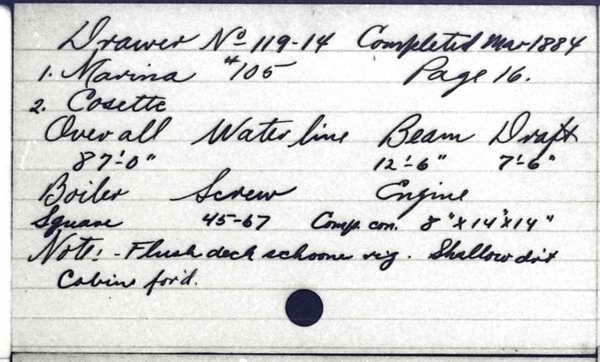 Drawer No 119-14 Completed Mar 1884
1. Marina #105 Page 16.
2. Cosette
Over all Water line Beam Draft
87'-0" 12'-6" 7'-6"
Boiler Screw Engine
Square 45-67 Comp. con. 8"x14"x14"
Note: - Flush deck schooner rig. Shallow d'r't
Cabins for'd.